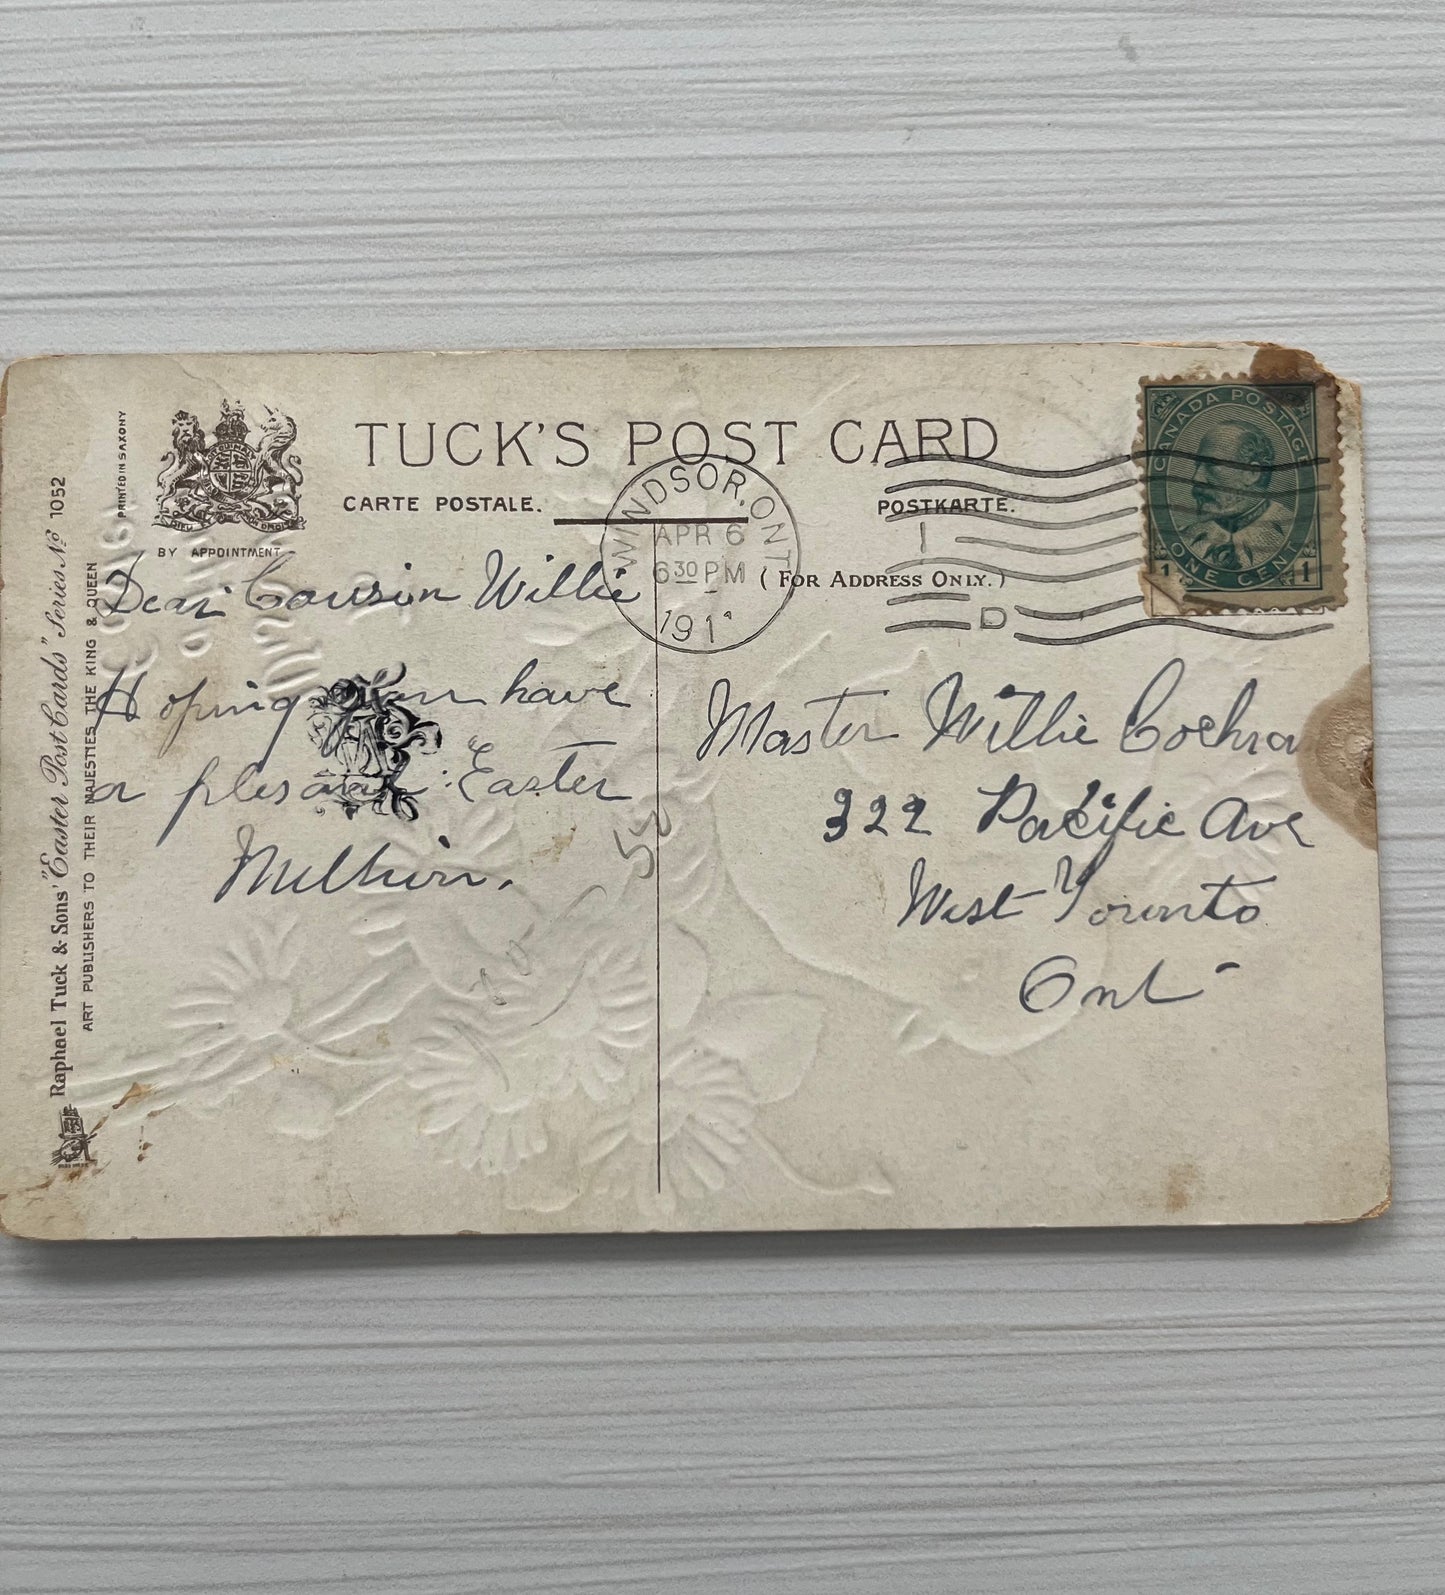 TUCK'S POST CARD
CARTE POSTALE.
POSTKARTE.
(FOR ADDRESS ONLY.)
BY APPOINTMENT
PRINTED IN SAXONY
Raphael Tuck & Sons' "Easter Post Cards" Series No 1052
ART PUBLISHERS TO THEIR MAJESTIES THE KING & QUEEN
WINDSOR, ONT.
APR 6
6 30 PM
191
I
D
CANADA POSTAGE
ONE CENT
1 1
Dear Cousin Willie
Hoping you have
a plesant Easter
Master Willie Cochra
322 Pacific Ave
West Toronto
Ont